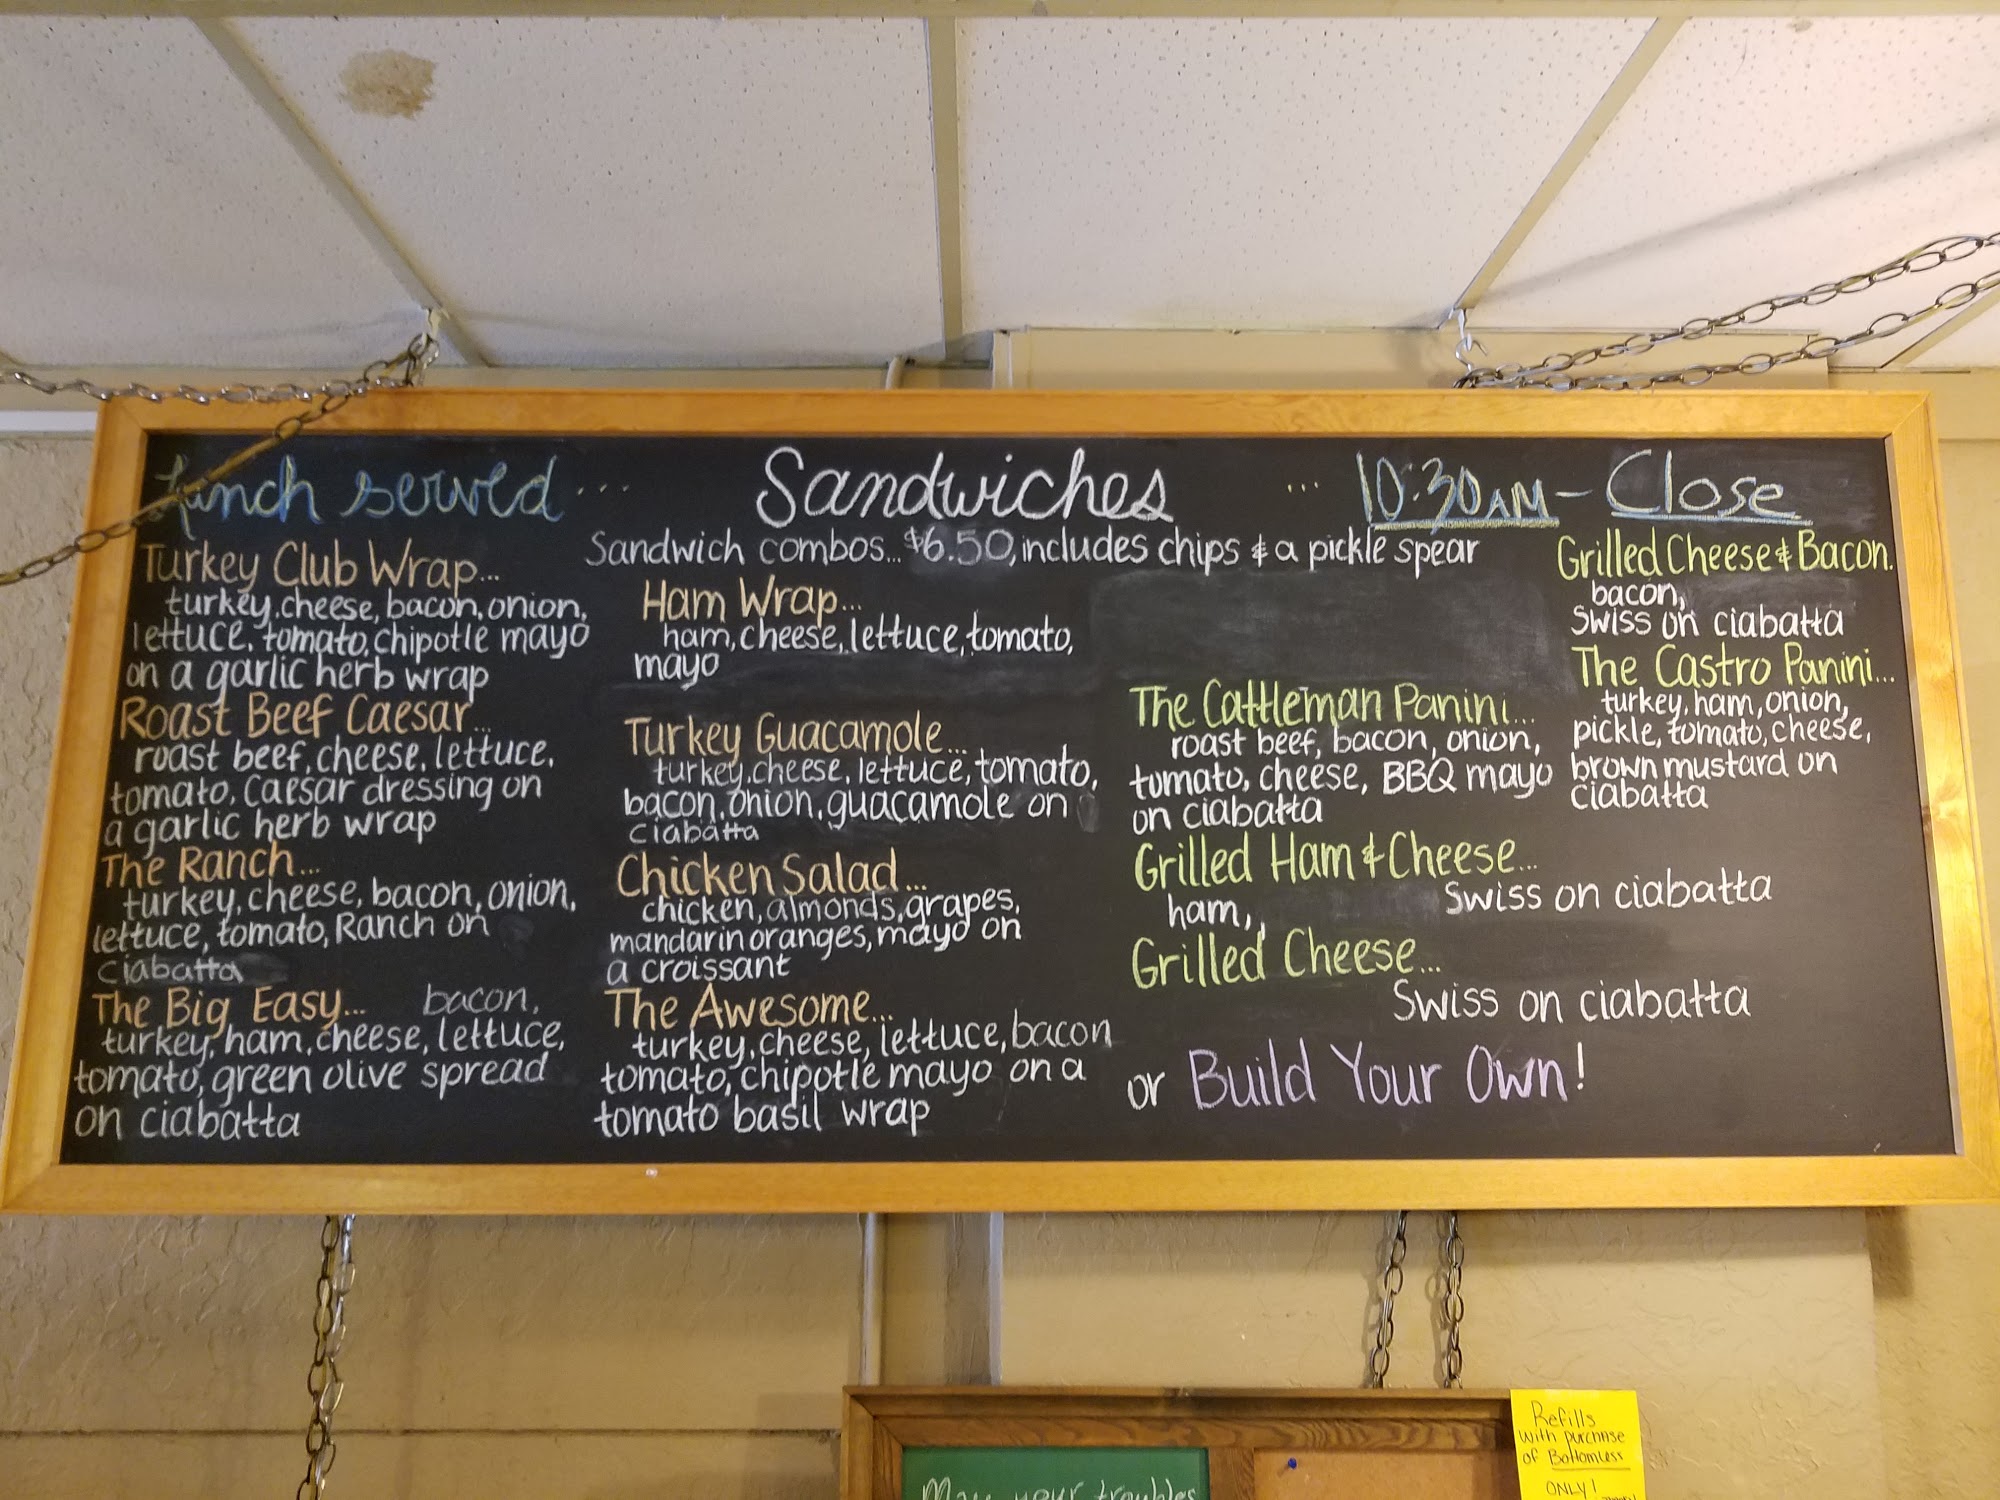 Lunch served ... Sandwiches ... 10:30AM - Close
Sandwich combos... $6.50, includes chips & a pickle spear
Turkey Club Wrap...
turkey, cheese, bacon, onion,
lettuce, tomato, chipotle mayo
on a garlic herb wrap
Roast Beef Caesar...
roast beef, cheese, lettuce,
tomato, Caesar dressing on
a garlic herb wrap
The Ranch...
turkey, cheese, bacon, onion,
lettuce, tomato, Ranch on
ciabatta
The Big Easy... bacon,
turkey, ham, cheese, lettuce,
tomato, green olive spread
on ciabatta
Ham Wrap...
ham, cheese, lettuce, tomato,
mayo
Turkey Guacamole...
turkey, cheese, lettuce, tomato,
bacon, onion, guacamole on
ciabatta
Chicken Salad...
chicken, almonds, grapes,
mandarin oranges, mayo on
a croissant
The Awesome...
turkey, cheese, lettuce, bacon
tomato, chipotle mayo on a
tomato basil wrap
The Cattleman Panini...
roast beef, bacon, onion,
tomato, cheese, BBQ mayo
on ciabatta
Grilled Ham & Cheese...
ham, Swiss on ciabatta
Grilled Cheese...
Swiss on ciabatta
or Build Your Own!
Grilled Cheese & Bacon.
bacon,
Swiss on ciabatta
The Castro Panini...
turkey, ham, onion,
pickle, tomato, cheese,
brown mustard on
ciabatta
May your troubles
Refills
with purchase
of Bottomless
ONLY!